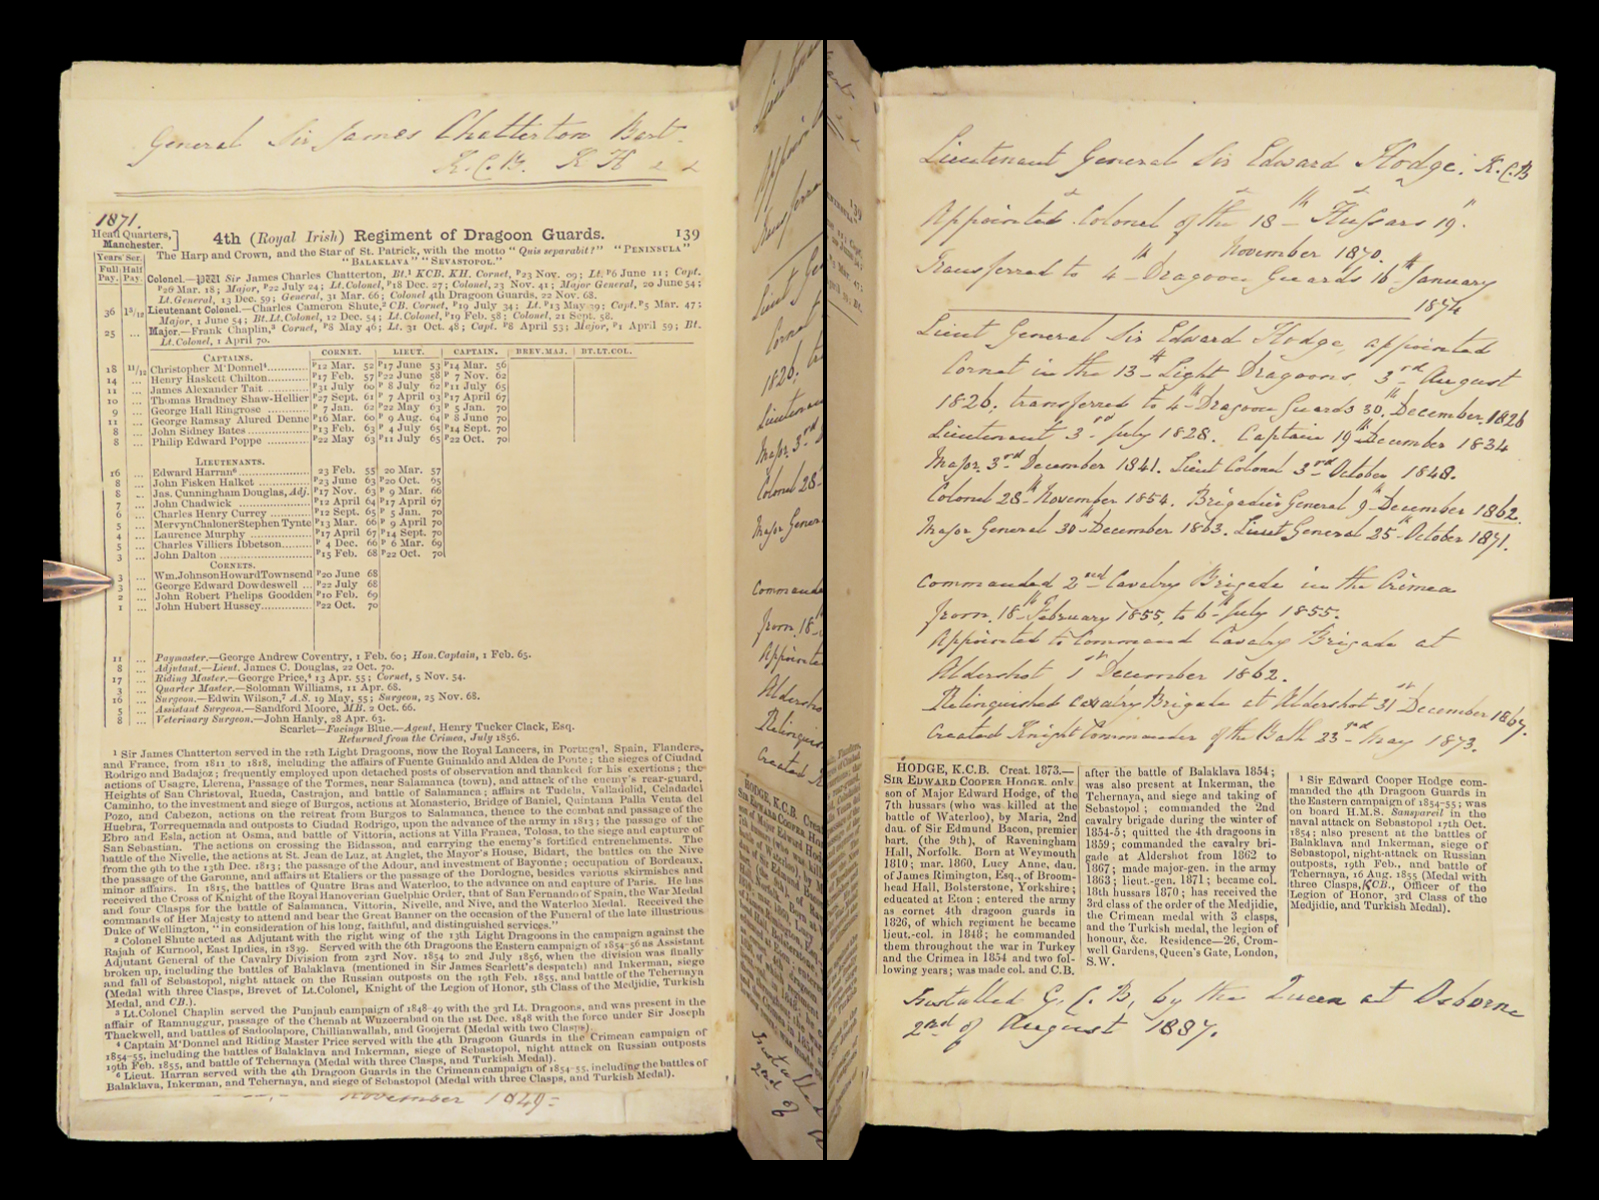 General Sir James Chatterton Bart.
K.C.B. K H
1871.
Head Quarters,
Manchester.
4th (Royal Irish) Regiment of Dragoon Guards. 139
The Harp and Crown, and the Star of St. Patrick, with the motto "Quis separabit?" "PENINSULA"
"BALAKLAVA" "SEVASTOPOL."
Years' Ser.
Full Pay. Half Pay.
Colonel.—Sir James Charles Chatterton, Bt.¹ KCB. KH, Cornet, P23 Nov. 09; Lt. P6 June 11; Capt.
P26 Mar. 18; Major, P22 July 24; Lt.Colonel, P18 Dec. 27; Colonel, 23 Nov. 41; Major General, 20 June 54;
Lt.General, 13 Dec. 59; General, 31 Mar. 66; Colonel 4th Dragoon Guards, 22 Nov. 68.
36 1³/₁₂ Lieutenant Colonel.—Charles Cameron Shute,² CB. Cornet, P19 July 34; Lt. P13 May 39; Capt. P5 Mar. 47;
Major, 1 June 54; Bt.Lt.Colonel, 12 Dec. 54; Lt.Colonel, P19 Feb. 58; Colonel, 21 Sept. 58.
25 ... Major.—Frank Chaplin,³ Cornet, P8 May 46; Lt. 31 Oct. 48; Capt. P8 April 53; Major, P1 April 59; Bt.
Lt.Colonel, 1 April 70.
CAPTAINS. CORNET. LIEUT. CAPTAIN. BREV.MAJ. BT.LT.COL.
18 11/12 Christopher M'Donnel⁴ P12 Mar. 52 P17 June 53 P14 Mar. 56
14 ... Henry Haskett Chilton P17 Feb. 57 P22 June 58 P 7 Nov. 62
11 ... James Alexander Tait P31 July 60 P 8 July 62 P11 July 65
10 ... Thomas Bradney Shaw-Hellier P27 Sept. 61 P 7 April 63 P17 April 67
9 ... George Hall Ringrose P 7 Jan. 62 P22 May 63 P 5 Jan. 70
11 ... George Ramsay Alured Denne P16 Mar. 60 P 9 Aug. 64 P 8 June 70
8 ... John Sidney Bates P13 Feb. 63 P 4 July 65 P14 Sept. 70
8 ... Philip Edward Poppe P22 May 63 P11 July 65 P22 Oct. 70
LIEUTENANTS.
16 ... Edward Harran⁶ 23 Feb. 55 20 Mar. 57
8 ... John Fisken Halket P23 June 63 P20 Oct. 65
8 ... Jas. Cunningham Douglas, Adj. P17 Nov. 63 P 9 Mar. 66
7 ... John Chadwick P12 April 64 P17 April 67
6 ... Charles Henry Currey P12 Sept. 65 P 5 Jan. 70
5 ... MervynChalonerStephen Tynte P13 Mar. 66 P 9 April 70
4 ... Laurence Murphy P17 April 67 P14 Sept. 70
5 ... Charles Villiers Ibbetson P 4 Dec. 66 P 6 Mar. 69
3 ... John Dalton P15 Feb. 68 P22 Oct. 70
CORNETS.
3 ... Wm.JohnsonHowardTownsend P20 June 68
3 ... George Edward Dowdeswell P22 July 68
2 ... John Robert Phelips Goodden P10 Feb. 69
1 ... John Hubert Hussey P22 Oct. 70
11 ... Paymaster.—George Andrew Coventry, 1 Feb. 60; Hon.Captain, 1 Feb. 65.
8 ... Adjutant.—Lieut. James C. Douglas, 22 Oct. 70.
17 ... Riding Master.—George Price,⁴ 13 Apr. 55; Cornet, 5 Nov. 54.
3 ... Quarter Master.—Soloman Williams, 11 Apr. 68.
16 ... Surgeon.—Edwin Wilson,⁷ A.S. 19 May, 55; Surgeon, 25 Nov. 68.
5 ... Assistant Surgeon.—Sandford Moore, MB. 2 Oct. 66.
8 ... Veterinary Surgeon.—John Hanly, 28 Apr. 63.
Scarlet—Facings Blue.—Agent, Henry Tucker Clack, Esq.
Returned from the Crimea, July 1856.
¹ Sir James Chatterton served in the 12th Light Dragoons, now the Royal Lancers, in Portugal, Spain, Flanders,
and France, from 1811 to 1818, including the affairs of Fuente Guinaldo and Aldea de Ponte; the sieges of Ciudad
Rodrigo and Badajoz; frequently employed upon detached posts of observation and thanked for his exertions; the
actions of Usagre, Llerena, Passage of the Tormes, near Salamanca (town), and attack of the enemy's rear-guard,
Heights of San Christoval, Rueda, Castrajon, and battle of Salamanca; affairs at Tudela, Valladolid, Celadadel
Caminho, to the investment and siege of Burgos, actions at Monasterio, Bridge of Baniel, Quintana Palla Venta del
Pozo, and Cabezon, actions on the retreat from Burgos to Salamanca, thence to the combat and passage of the
Huebra, Torrequemada and outposts to Ciudad Rodrigo, upon the advance of the army in 1813; the passage of the
Ebro and Esla, action at Osma, and battle of Vittoria, actions at Villa Franca, Tolosa, to the siege and capture of
San Sebastian. The actions on crossing the Bidassoa, and carrying the enemy's fortified entrenchments. The
battle of the Nivelle, the actions at St. Jean de Luz, at Anglet, the Mayor's House, Bidart, the battles on the Nive
from the 9th to the 13th Dec. 1813; the passage of the Adour, and investment of Bayonne; occupation of Bordeaux,
the passage of the Garonne, and affairs at Etaliers or the passage of the Dordogne, besides various skirmishes and
minor affairs. In 1815, the battles of Quatre Bras and Waterloo, to the advance on and capture of Paris. He has
received the Cross of Knight of the Royal Hanoverian Guelphic Order, that of San Fernando of Spain, the War Medal
and four Clasps for the battle of Salamanca, Vittoria, Nivelle, and Nive, and the Waterloo Medal. Received the
commands of Her Majesty to attend and bear the Great Banner on the occasion of the Funeral of the late illustrious
Duke of Wellington, "in consideration of his long, faithful, and distinguished services."
² Colonel Shute acted as Adjutant with the right wing of the 13th Light Dragoons in the campaign against the
Rajah of Kurnool, East Indies, in 1839. Served with the 6th Dragoons the Eastern campaign of 1854-56 as Assistant
Adjutant General of the Cavalry Division from 23rd Nov. 1854 to 2nd July 1856, when the division was finally
broken up, including the battles of Balaklava (mentioned in Sir James Scarlett's despatch) and Inkerman, siege
and fall of Sebastopol, night attack on the Russian outposts on the 19th Feb. 1855, and battle of the Tchernaya
(Medal with three Clasps, Brevet of Lt.Colonel, Knight of the Legion of Honor, 5th Class of the Medjidie, Turkish
Medal, and CB.).
³ Lt.Colonel Chaplin served the Punjaub campaign of 1848-49 with the 3rd Lt. Dragoons, and was present in the
affair of Ramnuggur, passage of the Chenab at Wuzeerabad on the 1st Dec. 1848 with the force under Sir Joseph
Thackwell, and battles of Sadoolapore, Chillianwallah, and Goojerat (Medal with two Clasps).
⁴ Captain M'Donnel and Riding Master Price served with the 4th Dragoon Guards in the Crimean campaign of
1854-55, including the battles of Balaklava and Inkerman, siege of Sebastopol, night attack on Russian outposts
19th Feb. 1855, and battle of Tchernaya (Medal with three Clasps, and Turkish Medal).
⁶ Lieut. Harran served with the 4th Dragoon Guards in the Crimean campaign of 1854-55, including the battles of
Balaklava, Inkerman, and Tchernaya, and siege of Sebastopol (Medal with three Clasps, and Turkish Medal).
November 1849
Lieutenant General Sir Edward Hodge. K.C.B
Appointed Colonel of the 18th Hussars 19th
November 1870.
Transferred to 4th Dragoon Guards 16th January
1874
Lieut General Sir Edward Hodge, appointed
Cornet in the 13th Light Dragoons, 3rd August
1826, transferred to 4th Dragoon Guards 30th December 1826
Lieutenant 3rd July 1828. Captain 19th December 1834
Major 3rd December 1841. Lieut Colonel 3rd October 1848.
Colonel 28th November 1854. Brigadier General 9th December 1862.
Major General 30th December 1863. Lieut General 25th October 1871.
Commanded 2nd Cavalry Brigade in the Crimea
from 18th February 1855, to 6th July 1855.
Appointed to Command Cavalry Brigade at
Aldershot 1st December 1862.
Relinquished Cavalry Brigade at Aldershot 31st December 1867.
Created Knight Commander of the Bath 23rd May 1873.
HODGE, K.C.B. Creat. 1873.—
SIR EDWARD COOPER HODGE, only
son of Major Edward Hodge, of the
7th hussars (who was killed at the
battle of Waterloo), by Maria, 2nd
dau. of Sir Edmund Bacon, premier
bart. (the 9th), of Raveningham
Hall, Norfolk. Born at Weymouth
1810; mar. 1860, Lucy Anne, dau.
of James Rimington, Esq., of Broom-
head Hall, Bolsterstone, Yorkshire;
educated at Eton; entered the army
as cornet 4th dragoon guards in
1826, of which regiment he became
lieut.-col. in 1848; he commanded
them throughout the war in Turkey
and the Crimea in 1854 and two fol-
lowing years; was made col. and C.B.
after the battle of Balaklava 1854;
was also present at Inkerman, the
Tchernaya, and siege and taking of
Sebastopol; commanded the 2nd
cavalry brigade during the winter of
1854-5; quitted the 4th dragoons in
1859; commanded the cavalry bri-
gade at Aldershot from 1862 to
1867; made major-gen. in the army
1863; lieut.-gen. 1871; became col.
18th hussars 1870; has received the
3rd class of the order of the Medjidie,
the Crimean medal with 3 clasps,
and the Turkish medal, the legion of
honour, &c. Residence—26, Crom-
well Gardens, Queen's Gate, London,
S.W.
¹ Sir Edward Cooper Hodge com-
manded the 4th Dragoon Guards in
the Eastern campaign of 1854-55; was
on board H.M.S. Sanspareil in the
naval attack on Sebastopol 17th Oct.
1854; also present at the battles of
Balaklava and Inkerman, siege of
Sebastopol, night-attack on Russian
outposts, 19th Feb., and battle of
Tchernaya, 16 Aug. 1855 (Medal with
three Clasps, KCB., Officer of the
Legion of Honor, 3rd Class of the
Medjidie, and Turkish Medal).
Installed G.C.B, by the Queen at Osborne
2nd of August 1887.